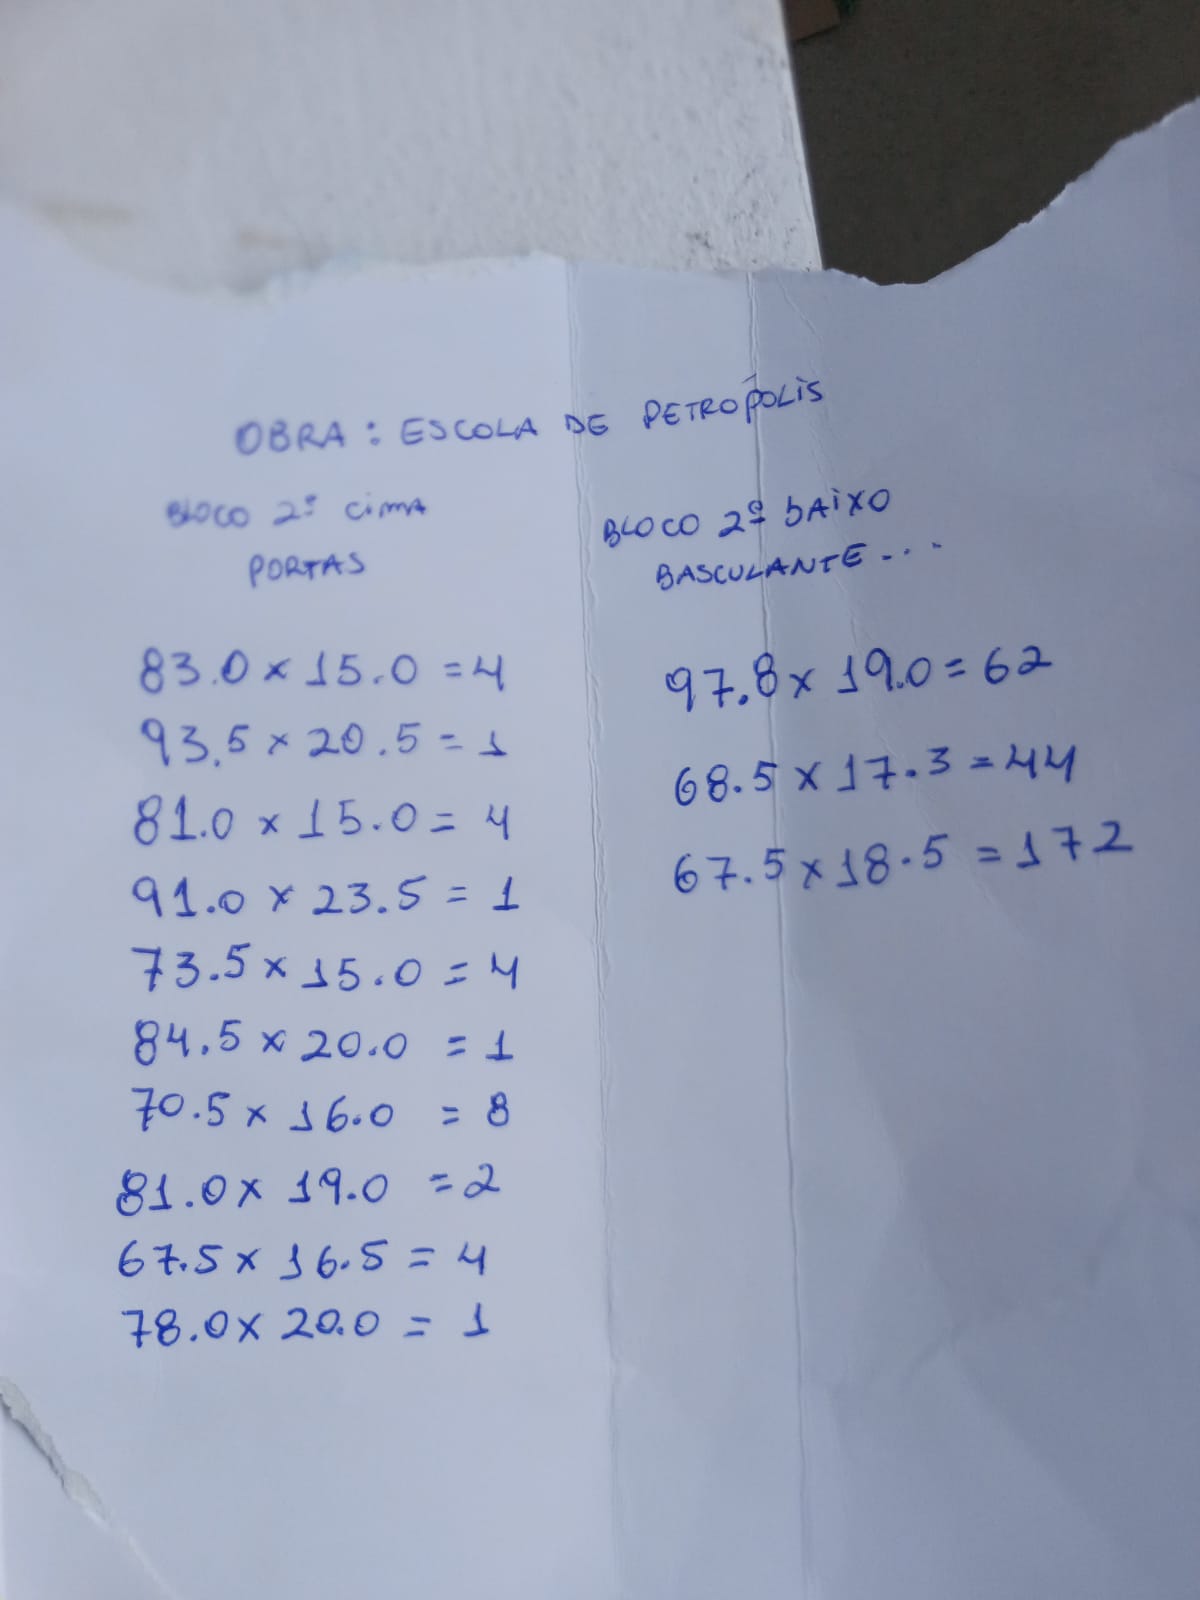 OBRA: ESCOLA DE PETRÓPOLIS
BLOCO 2º CIMA
PORTAS
83.0 x 15.0 = 4
93.5 x 20.5 = 1
81.0 x 15.0 = 4
91.0 x 23.5 = 1
73.5 x 15.0 = 4
84.5 x 20.0 = 1
70.5 x 16.0 = 8
81.0 x 19.0 = 2
67.5 x 16.5 = 4
78.0 x 20.0 = 1
BLOCO 2º BAIXO
BASCULANTE...
97.8 x 19.0 = 62
68.5 x 17.3 = 44
67.5 x 18.5 = 172